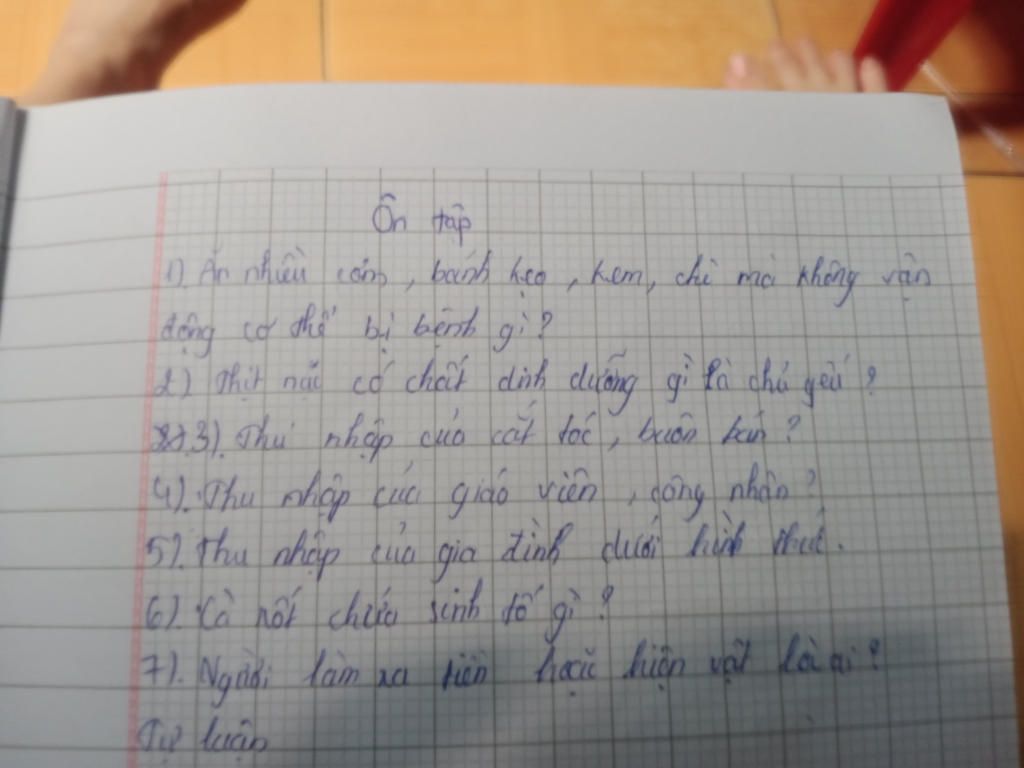 Ôn tập
1) Ăn nhiều cơm, bánh kẹo, kem, chỉ mà không vận
động cơ thể bị bệnh gì?
2) Thịt nạc có chất dinh dưỡng gì là chủ yếu?
3). Thu nhập của cắt tóc, buôn bán?
4). Thu nhập của giáo viên, công nhân?
5). Thu nhập của gia đình dưới hình thức.
6). Cà rốt chứa sinh tố gì?
7). Người làm ra tiền hoặc hiện vật là ai?
Tự luận